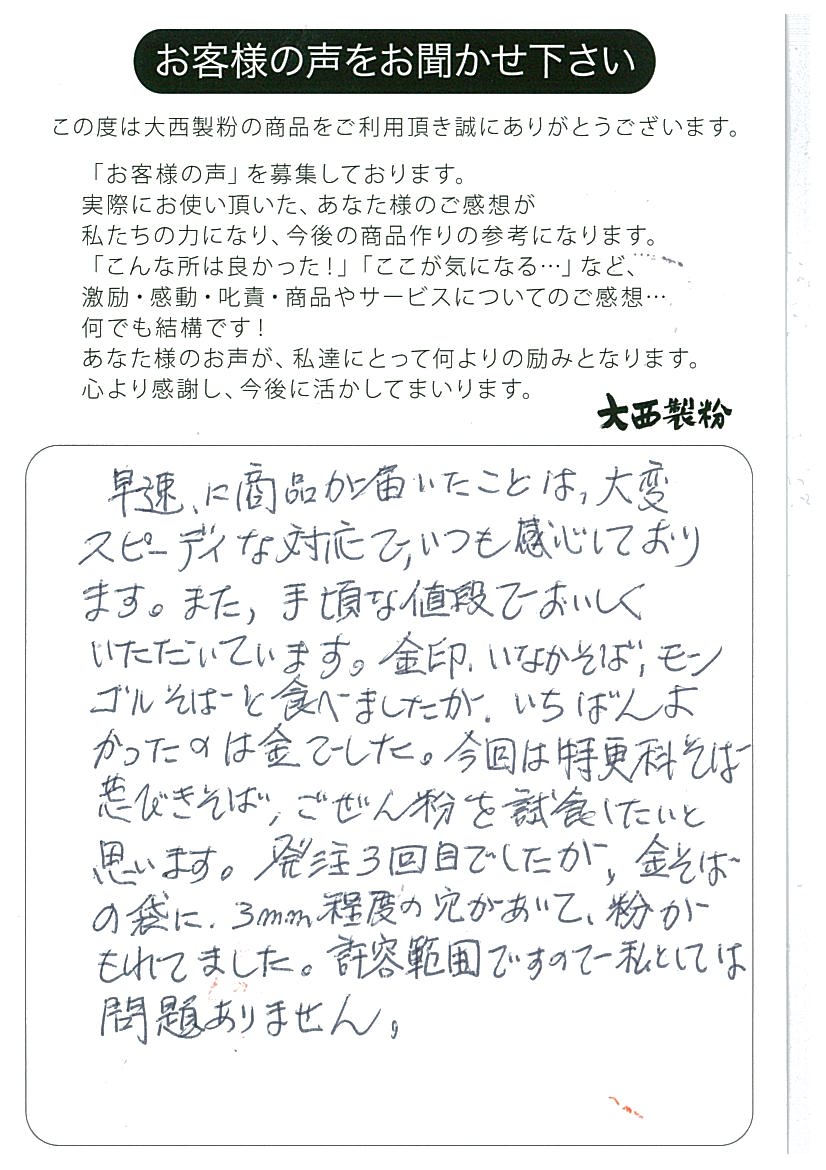 お客様の声をお聞かせ下さい
この度は大西製粉の商品をご利用頂き誠にありがとうございます。
「お客様の声」を募集しております。
実際にお使い頂いた、あなた様のご感想が
私たちの力になり、今後の商品作りの参考になります。
「こんな所は良かった!」「ここが気になる…」など、
激励・感動・叱責・商品やサービスについてのご感想…
何でも結構です!
あなた様のお声が、私達にとって何よりの励みとなります。
心より感謝し、今後に活かしてまいります。
大西製粉
早速、に商品が届いたことは、大変
スピーディな対応で、いつも感心しており
ます。また、手頃な値段でおいしく
いただいています。金印、いなかそば、モン
ゴルそばと食べましたが、いちばんよ
かったのは金でした。今回は特更科そば
荒びきそば、ごぜん粉を試食したいと
思います。発注3回目でしたが、金そば
の袋に、3mm程度の穴があいて、粉が
もれてました。許容範囲ですので私としては
問題ありません。